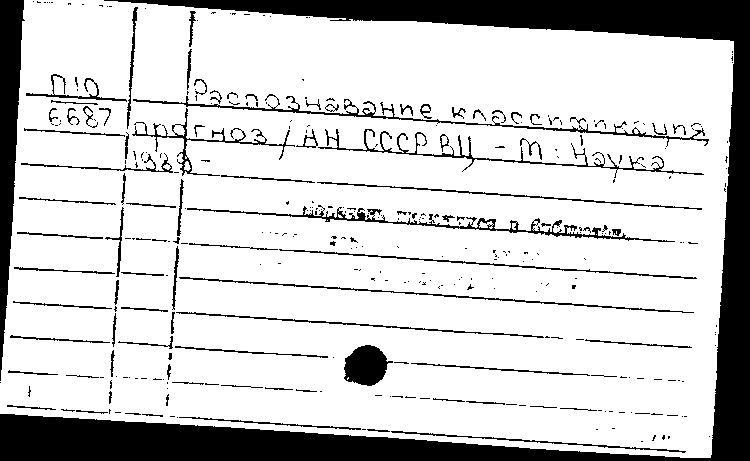 П10
6687
Распознавание, классификация,
прогноз / АН СССР ВЦ, - М: Наука,
1989 -
имеющихся в библиотеке.